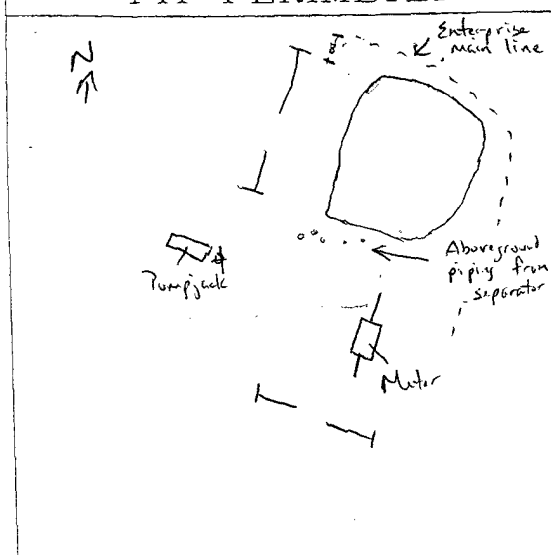 PIT PERIMETER
N
Enterprise
main line
Aboveground
piping from
separator
Pumpjack
Meter